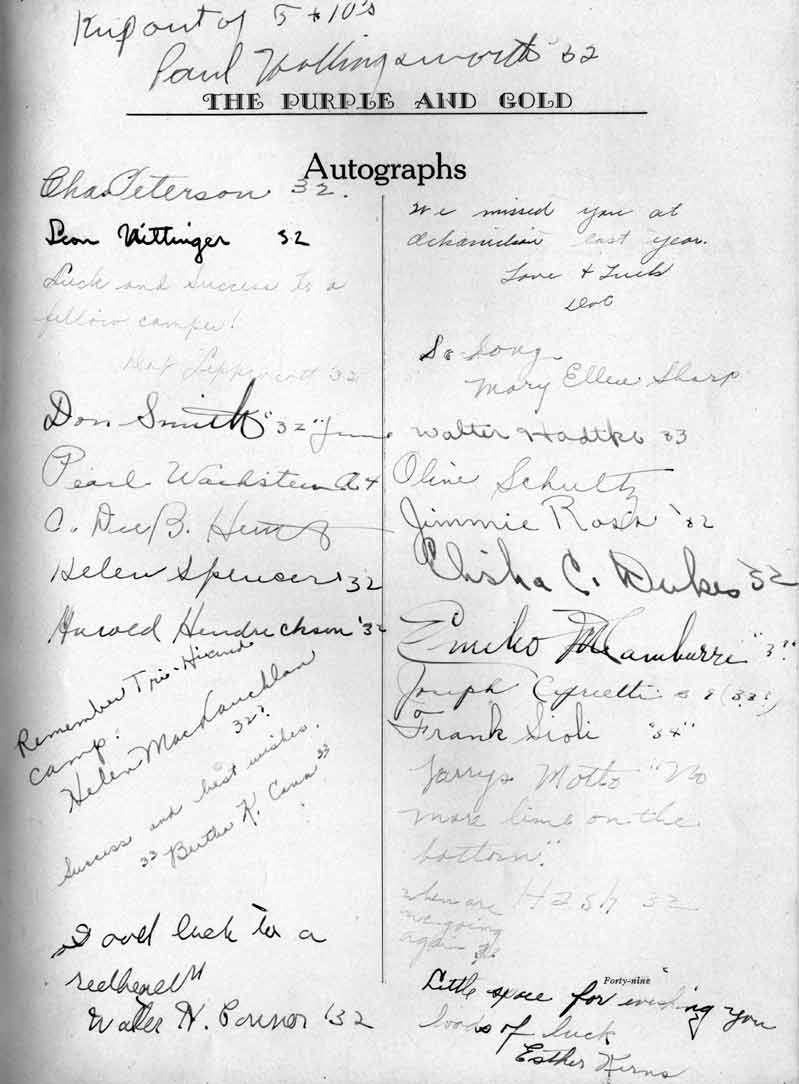 Kup out of 5 + 10's
Paul Hollingsworth 32
THE PURPLE AND GOLD
Autographs
Chas Peterson 32.
Leon Nittinger 32
Luck and success to a
fellow camper!
Dot Lippincott '32
Don Smith "32" June
Pearl Wachstein A+
C. Dee B.
Helen Spencer '32
Harold Hendrickson '32
Remember Tri-
camp.
Helen MacLauchlan
32?
Success and best wishes.
33 Bertha K. 33
Good luck to a
redhead
Walter N. Connor '32
We missed you at
last year.
Love + Luck
Dot
So Long
Mary Ellen Sharp
Walter Hadtke 33
Olive Schultz
Jimmie Rosin '32
Elisha C. Dukes '32
Emiko "3?"
Joseph (33?)
Frank Sioli "34"
Larrys Motto "No
more lime on the
bottom".
when are Hash 32
we going
again
Forty-nine
Little space for wishing you
loads of luck
Esther Kerns